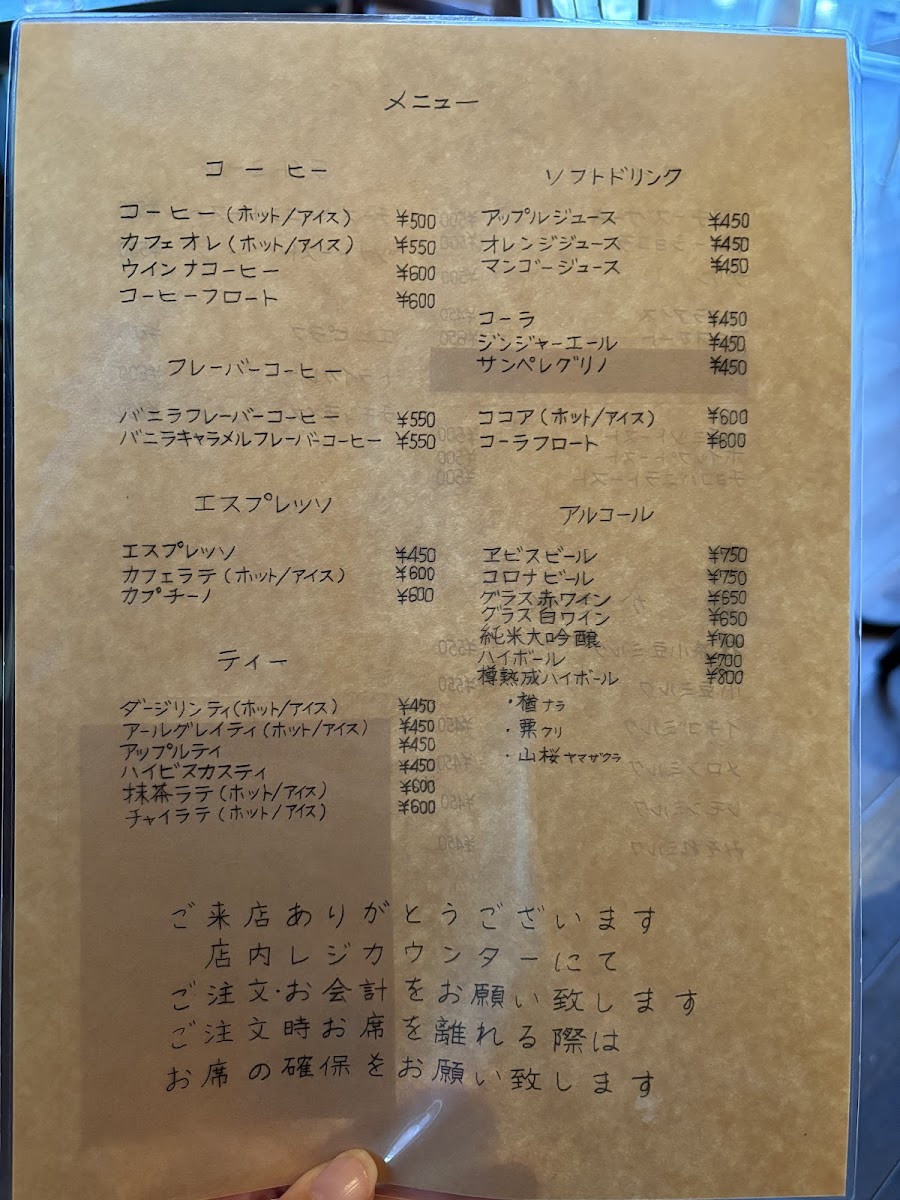 メニュー
コーヒー
コーヒー(ホット/アイス) ¥500
カフェオレ(ホット/アイス) ¥550
ウインナコーヒー ¥600
コーヒーフロート ¥600
フレーバーコーヒー
バニラフレーバーコーヒー ¥550
バニラキャラメルフレーバーコーヒー ¥550
エスプレッソ
エスプレッソ ¥450
カフェラテ(ホット/アイス) ¥600
カプチーノ ¥600
ティー
ダージリンティ(ホット/アイス) ¥450
アールグレイティ(ホット/アイス) ¥450
アップルティ ¥450
ハイビスカスティ ¥450
抹茶ラテ(ホット/アイス) ¥600
チャイラテ(ホット/アイス) ¥600
ソフトドリンク
アップルジュース ¥450
オレンジジュース ¥450
マンゴージュース ¥450
コーラ ¥450
ジンジャーエール ¥450
サンペレグリノ ¥450
ココア(ホット/アイス) ¥600
コーラフロート ¥600
アルコール
ヱビスビール ¥750
コロナビール ¥750
グラス赤ワイン ¥650
グラス白ワイン ¥650
純米大吟醸 ¥700
ハイボール ¥700
樽熟成ハイボール ¥800
・楢ナラ
・栗クリ
・山桜ヤマザクラ
ご来店ありがとうございます
店内レジカウンターにて
ご注文・お会計をお願い致します
ご注文時お席を離れる際は
お席の確保をお願い致します